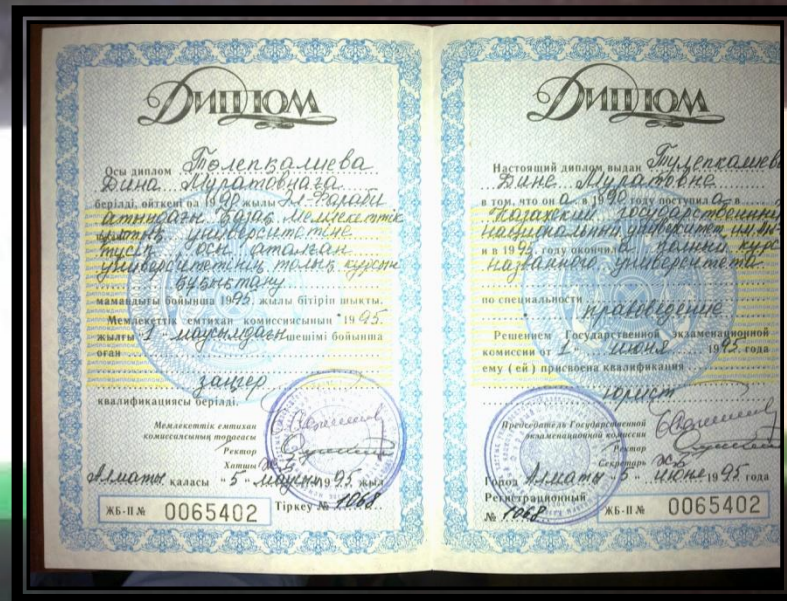 ДИПЛОМ
Осы диплом Төлепқалиева
Дина Муратовнаға
берілді, өйткені ол 1990 жылы Әл-Фараби
атындағы Қазақ мемлекеттік
ұлттық университетіне
түсіп, осы аталған
университетінің толық курсын
мамандығы бойынша 1995 жылы бітіріп шықты.
Мемлекеттік емтихан комиссиясының 1995
жылғы 1 маусымдағы шешімі бойынша
оған
заңгер
квалификациясы берілді.
Мемлекеттік емтихан
комиссиясының төрағасы
Ректор
Хатшы
Алматы қаласы "5" маусым 1995 жыл
ЖБ-II № 0065402 Тіркеу № 1068
ДИПЛОМ
Настоящий диплом выдан Тулепкалиевой
Дине Муратовне
в том, что он а в 1990 году поступил а в
Казахский государственный
национальный университет им.
и в 1995 году окончил а полный курс
названного университета
по специальности
правоведение
Решением Государственной экзаменационной
комиссии от 1 июня 1995 года
ему ( ей ) присвоена квалификация
юрист
Председатель Государственной
экзаменационной комиссии
Ректор
Секретарь
Город Алматы "5" июня 1995 года
Регистрационный
№ 1068 ЖБ-II № 0065402